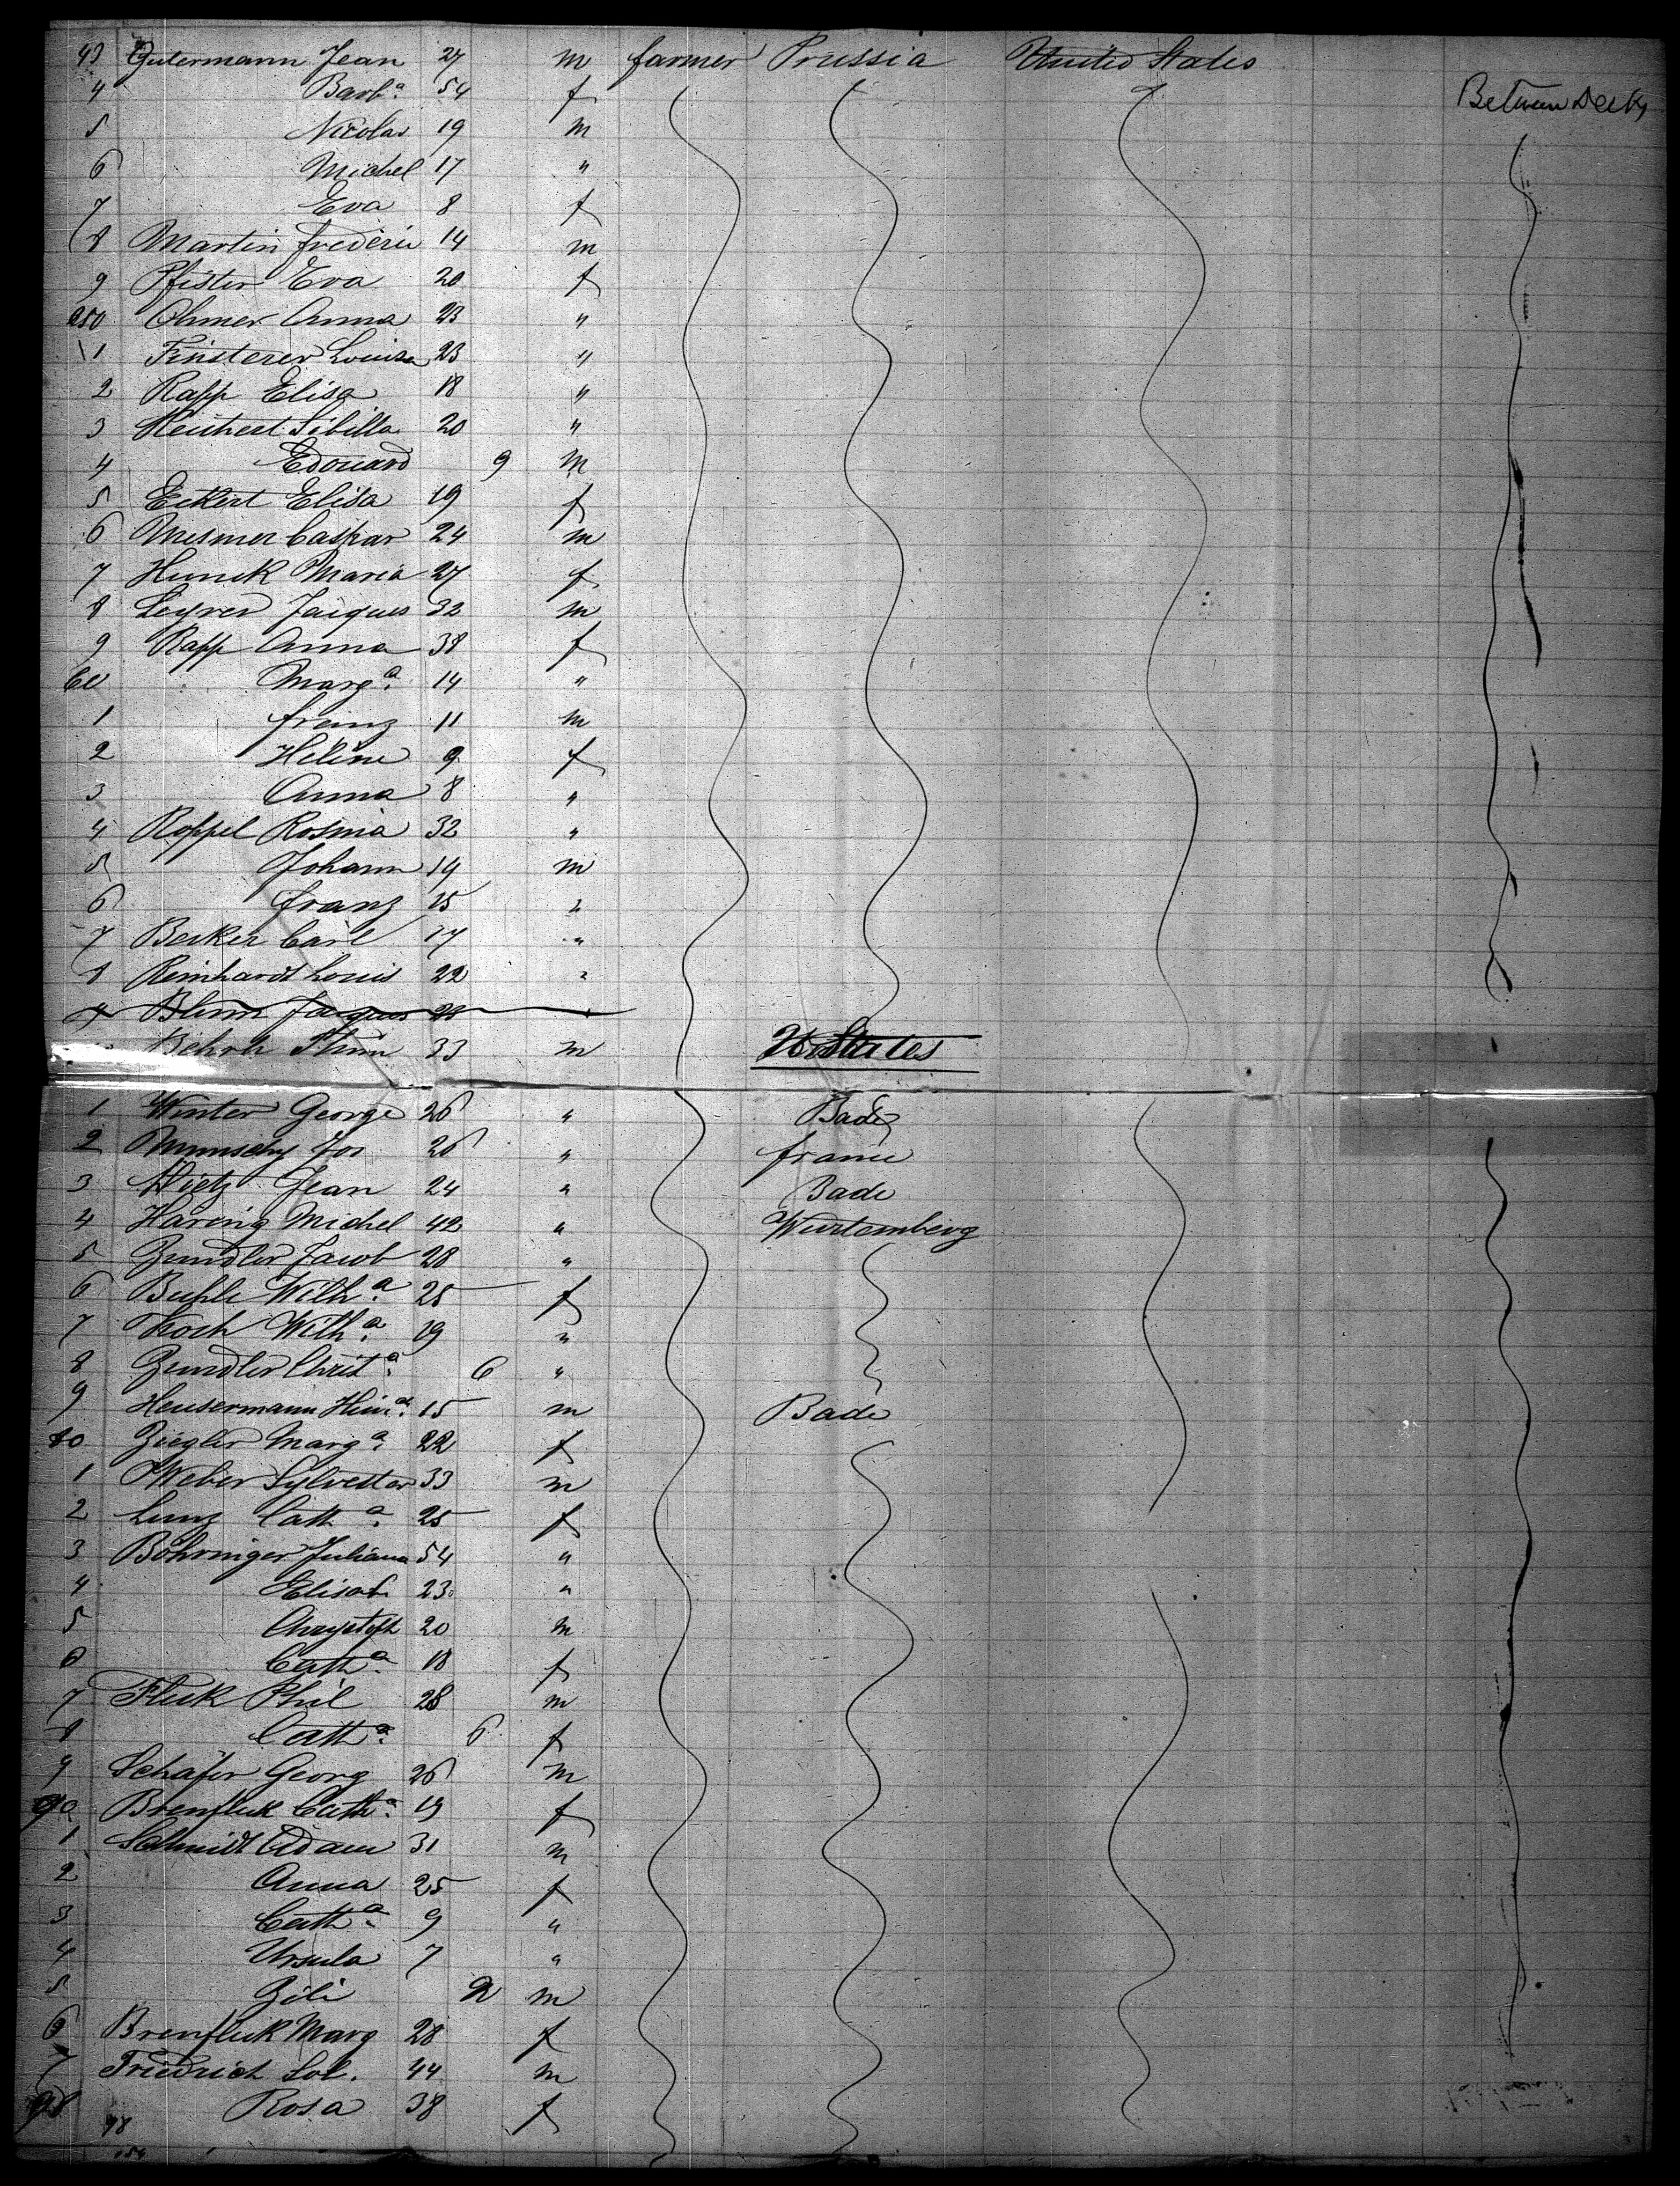 43 Gutermann Jean 27 m farmer Prussia United States
4 Barbª 54 f Between Decks
5 Nicolas 19 m
6 Michel 17 "
7 Eva 8 f
8 Martin frederic 14 m
9 Pfister Eva 20 f
250 Ohmer Anna 23 "
1 Finsterer Louisa 23 "
2 Rapp Elisa 18 "
3 Sibilla 20 "
4 Edouard 9 m
5 Eckert Elisa 19 f
6 Mesmer Caspar 24 m
7 Hunek Maria 27 f
8 Jacques 32 m
9 Rapp Anna 38 f
60 Margª 14 "
1 franz 11 m
2 Heléne 9 f
3 Anna 8 "
4 Roppel Rosina 32 "
5 Johann 19 m
6 franz 15 "
7 Becker Carl 17 "
8 Reinhardt Louis 22 "
9 Blum Jacques 28 "
33 m U States
1 Winter George 26 " Bade
2 Jos 26 " france
3 Jean 24 " Bade
4 Haring Michel 42 " Wurtemberg
5 Zundler Jacob 28 "
6 Buhle Wilhª 25 f
7 Koch Wilhª 19 "
8 Zundler Christª 6 "
9 Heusermann 15 m Bade
80 Ziegler Margª 22 f
1 Weber Sylvester 33 m
2 Lunz Cathª 25 f
3 Böhringer Juliana 54 "
4 Elisab 23 "
5 Chrystoph 20 m
6 Cathª 18 f
7 Fluk Phil 28 m
8 Cathª 6 f
9 Schäfer Georg 26 m
90 Brenfluk Cathª 19 f
1 Schmidt Adam 31 m
2 Anna 25 f
3 Cathª 9 "
4 Ursula 7 "
5 Zili 2 m
6 Brenfluk Marg 28 f
7 Friedrich Sol. 44 m
98 Rosa 38 f
98